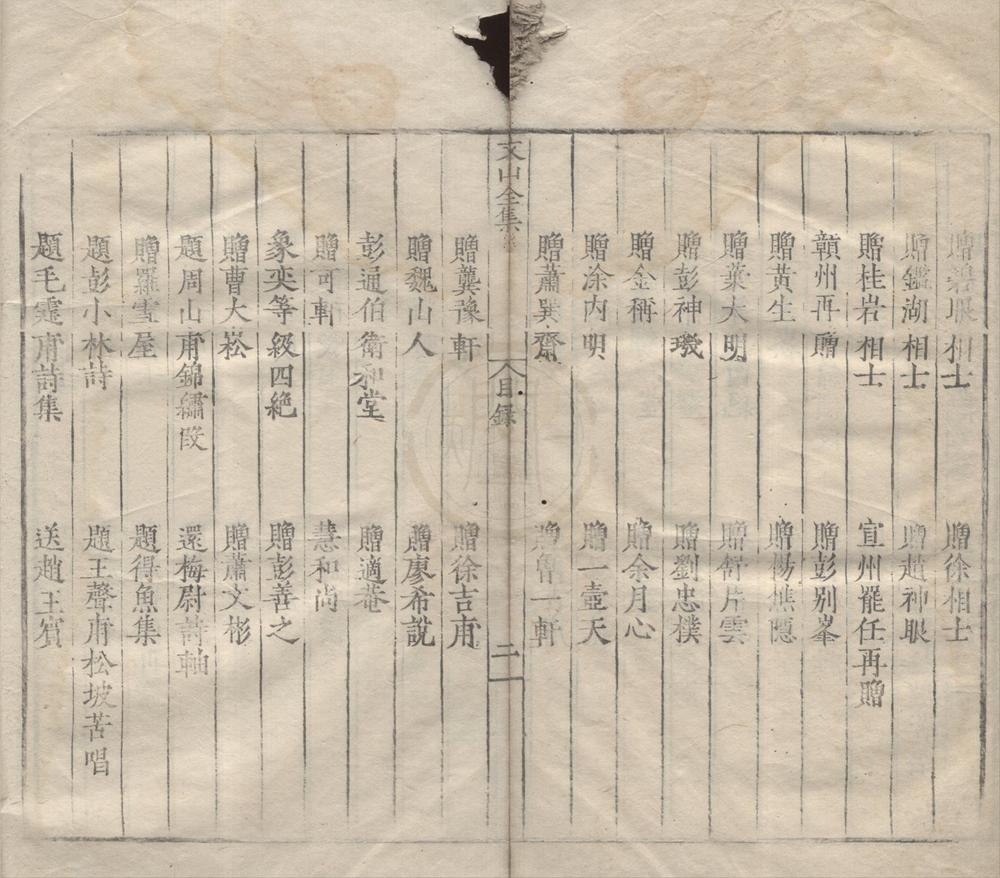 贈碧眼相士　贈徐相士
贈鑑湖相士　贈趙神眼
贈桂岩相士　宣州罷任再贈
贛州再贈　贈彭别峯
贈黄生　贈楊樵隱
贈葉大明　贈舒片雲
贈彭神機　贈劉忠樸
贈金稱　贈余月心
贈涂内明　贈一壺天
贈蕭巽齋　贈魯一軒
文山全集
目録
二
贈龔豫軒　贈徐吉甫
贈魏山人　贈廖希説
彭通伯衛和堂　贈適菴
贈可軒　慧和尚
象奕等級四絶　贈彭善之
贈曹大崧　贈蕭文彬
題周山甫錦繡段　還梅尉詩軸
贈羅雪屋　題得魚集
題彭小林詩　題王聲甫松坡苦唱
題毛霆甫詩集　送趙王賓